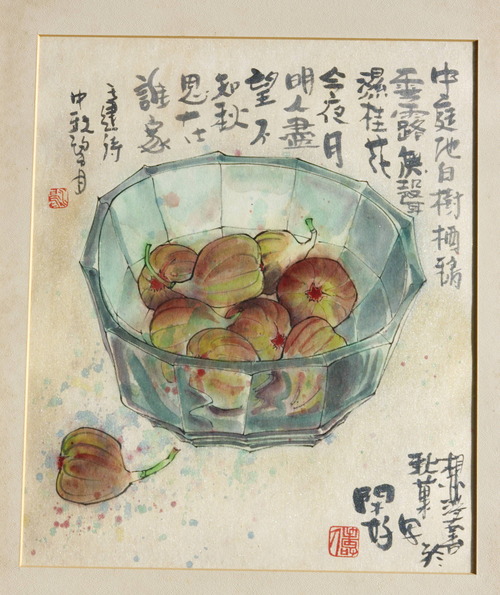 中庭地白樹栖鴉
露無聲
濕桂花
今夜月
明人盡
望不
知秋
思在
誰家
王建詩
中秋望月
秋菓
閑好